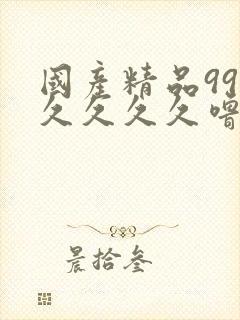 國產精品99
久久久久噜
晨拾叁